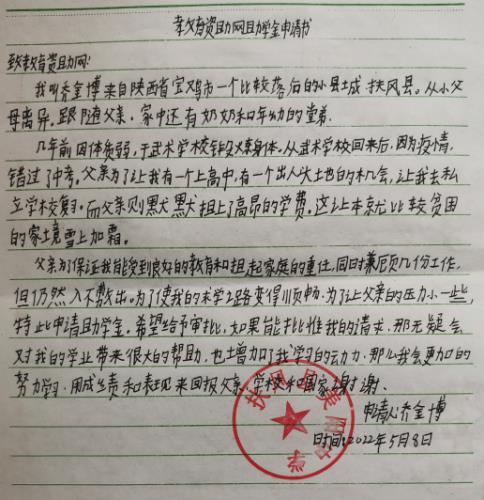 教育资助网助学金申请书
致教育资助网:
我叫乔金博来自陕西省宝鸡市一个比较落后的小县城扶风县。从小父
母离异。跟随父亲。家中还有奶奶和年幼的堂弟.
几年前因体质弱,于武术学校锻炼身体。从武术学校回来后,因为疫情,
错过了中考。父亲为了让我有一个上高中,有一个出人头地的机会,让我去私
立学校复习.而父亲则默默担上了高昂的学费。这让本就比较贫困
的家境雪上加霜。
父亲为了保证我能受到良好的教育和担起家庭的重任,同时兼顾几份工作,
但仍然入不敷出。为了使我的求学之路变得顺畅.为了让父亲的压力小一些,
特此申请助学金。希望给予审批,如果能批准我的请求.那无疑会
对我的学业带来很大的帮助.也增加了我学习的动力.那么我会更加的
努力学习.用成绩和表现来回报父亲.学校和国家.谢谢.
申请人乔金博
时间:2022年5月8日
扶风县美阳中学